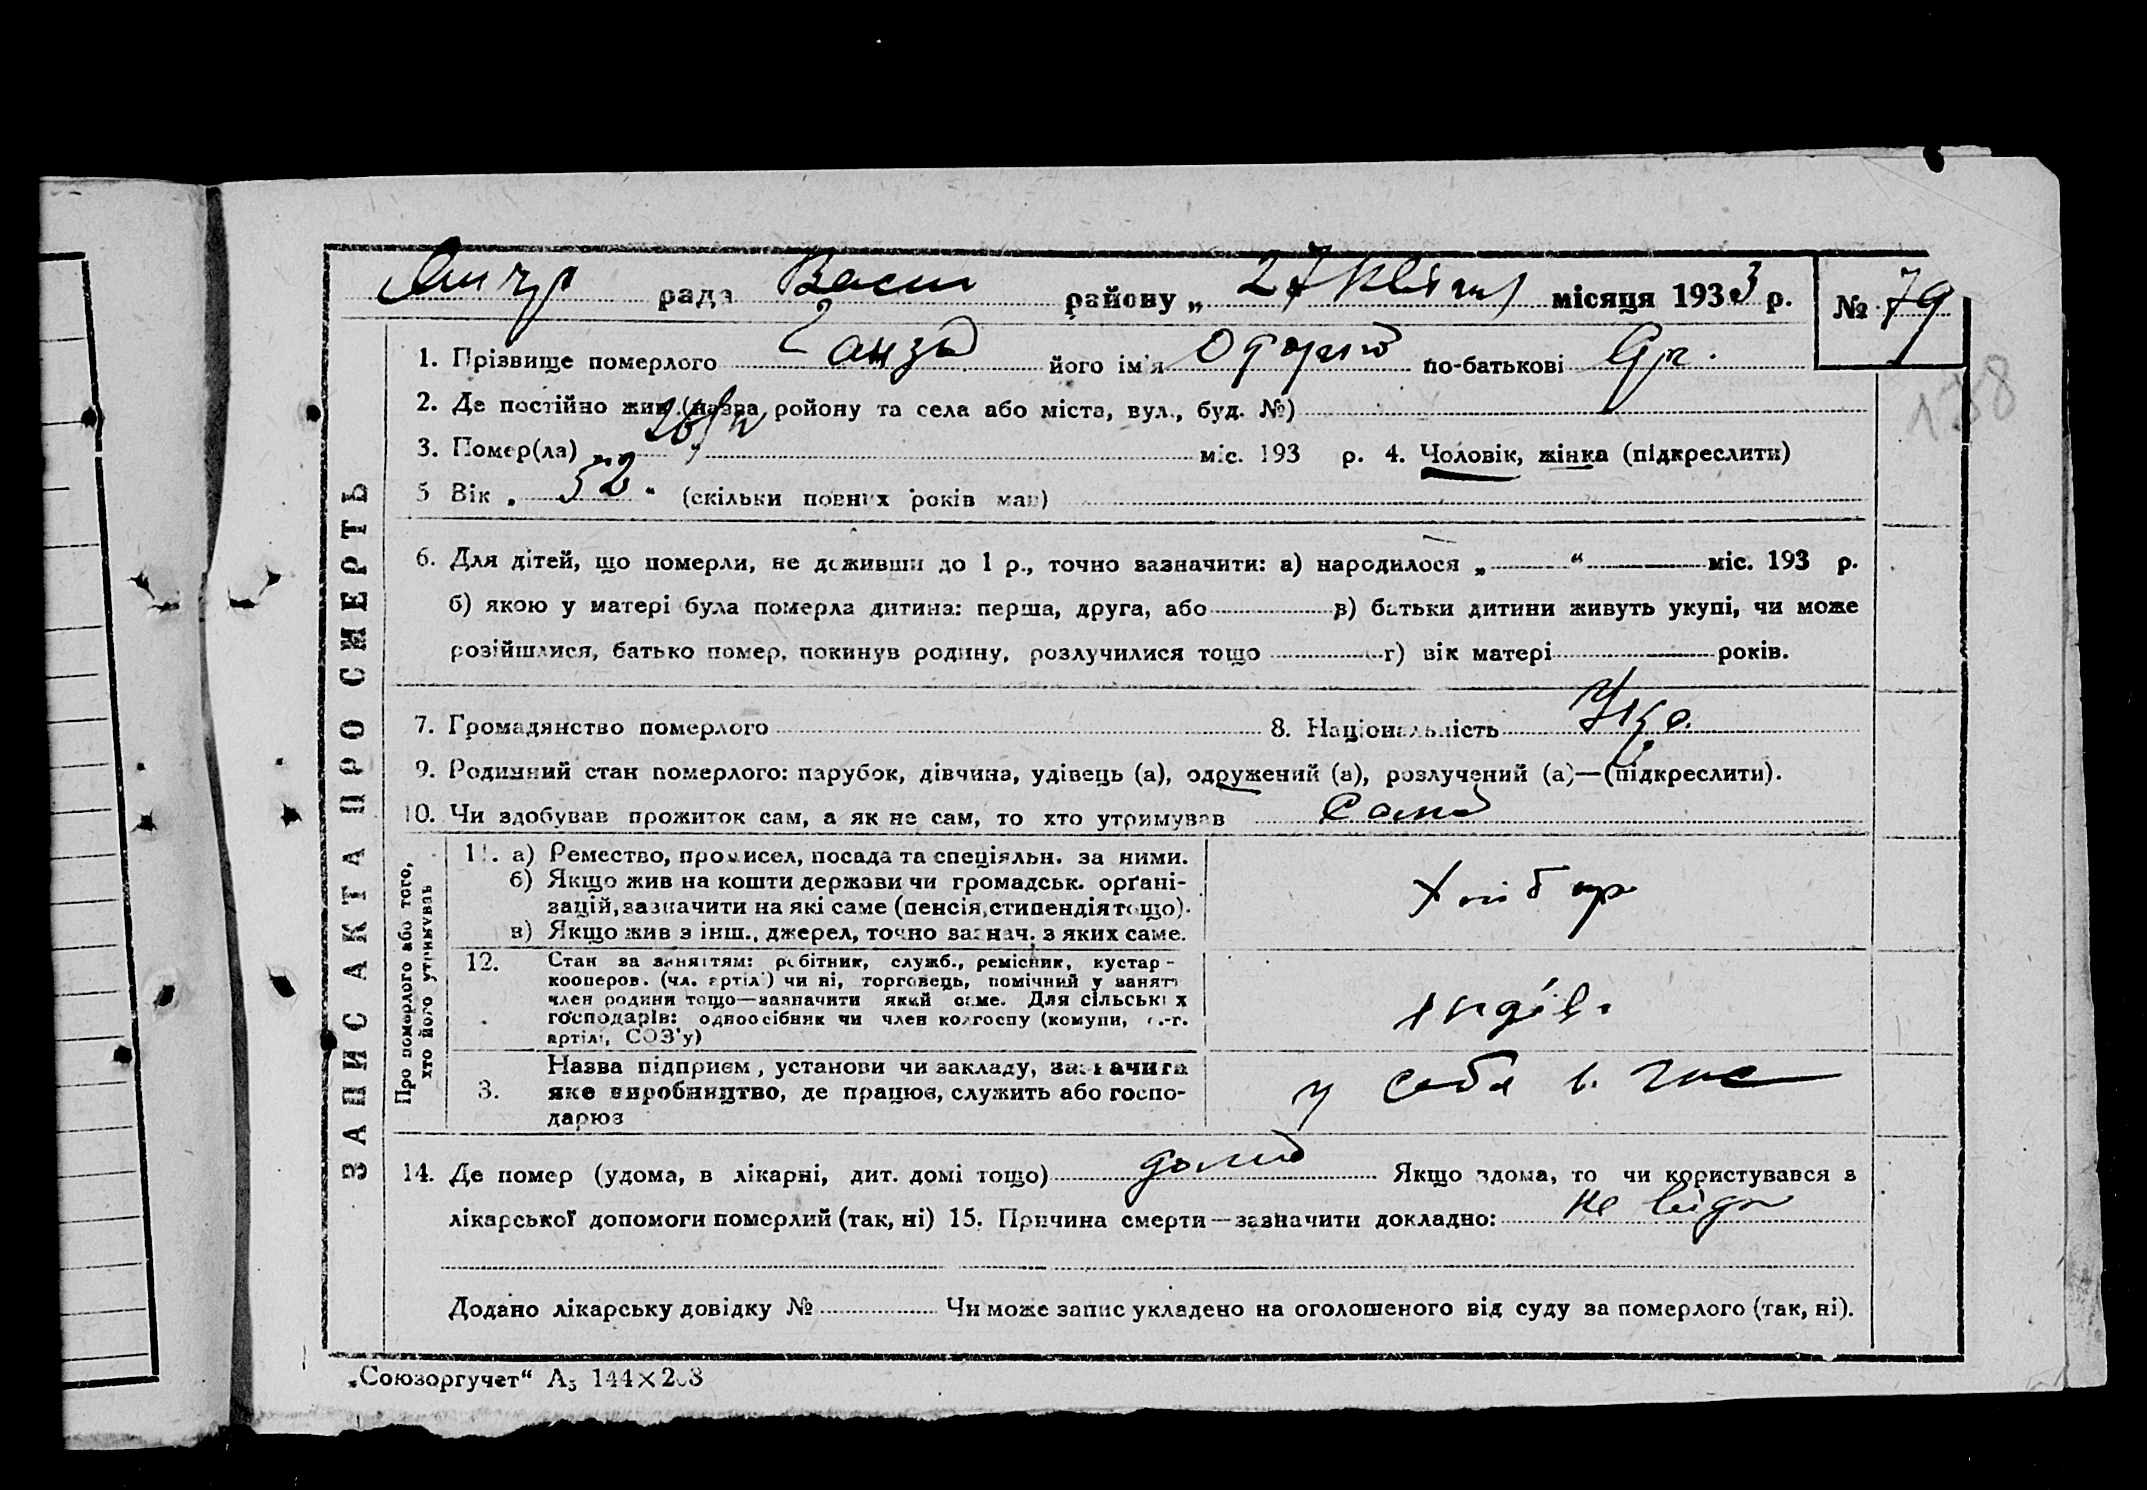 рада Васил району „ 27 квітня місяця 1933 р. № 79
1. Прізвище померлого його ім'я по-батькові
2. Де постійно жив (назва ройону та села або міста, вул., буд. №)
3. Помер(ла) „ 26/IV " міс. 193 р. 4. Чоловік, жінка (підкреслити)
5 Вік „ 52 " (скільки повних років мав)
6. Для дітей, що померли, не доживши до 1 р., точно зазначити: а) народилося „ “ міс. 193 р.
б) якою у матері була померла дитина: перша, друга, або в) батьки дитини живуть укупі, чи може
розійшлися, батько помер, покинув родину, розлучилися тощо г) вік матері років.
7. Громадянство померлого 8. Національність Укр.
9. Родинний стан померлого: парубок, дівчина, удівець (а), одружений (а), розлучений (а)—(підкреслити).
10. Чи здобував прожиток сам, а як не сам, то хто утримував Сам
11. а) Ремество, промисел, посада та спеціяльн. за ними.
б) Якщо жив на кошти держави чи громадськ. орґані-
зацій, зазначити на які саме (пенсія, стипендія тощо).
в) Якщо жив з інш., джерел, точно зазнач. з яких саме.
Хлібор
12. Стан за заняттям: робітник, служб., ремісник, кустар -
кооперов. (чл. артіл) чи ні, торговець, помічний у занятт
член родини тощо—зазначити який саме. Для сільських
господарів: одноосібник чи член колгоспу (комуни, с.-г.
артілі, СОЗ'у)
індів.
3. Назва підприєм , установи чи закладу, зазначити
яке виробництво, де працює, служить або госпо-
дарює
у себе в
14. Де помер (удома, в лікарні, дит. домі тощо) дома Якщо вдома, то чи користувався з
лікарської допомоги померлий (так, ні) 15. Причина смерти—зазначити докладно: не відом
Додано лікарську довідку № Чи може запис укладено на оголошеного від суду за померлого (так, ні).
ЗАПИС АКТА ПРО СМЕРТЬ
Про померлого або того,
хто його утримував
„Союзоргучет“ А₅ 144×203